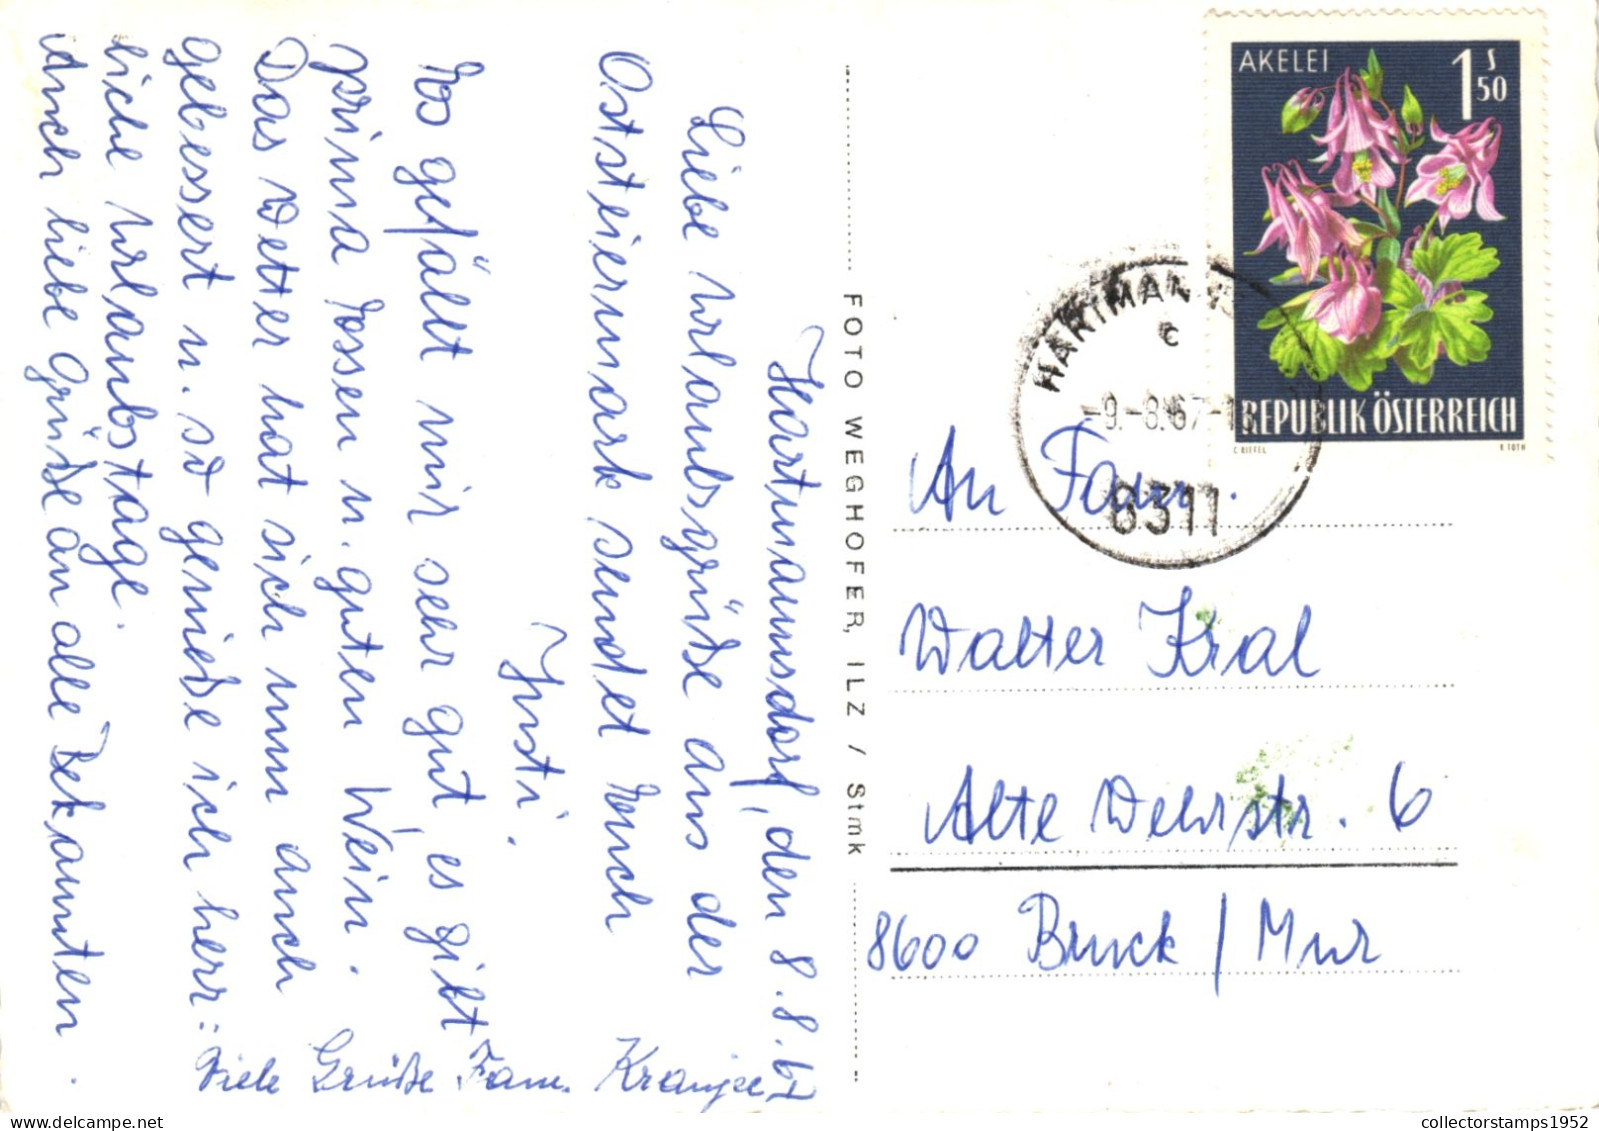 Hartmannsdorf, den 8.8.67
Liebe Urlaubsgrüße aus der
Oststeiermark sendet Euch
Justi.
Es gefällt mir sehr gut, es gibt
prima Essen u. guten Wein.
Das Wetter hat sich nun auch
gebessert u. so genieße ich herr-
liche Urlaubstage.
Auch liebe Grüße an alle Bekannten.
Viele Grüße Fam.
FOTO WEGHOFER, ILZ / Stmk
AKELEI
1 S 50
REPUBLIK ÖSTERREICH
c
-9.-8.67-
8311
An Fam.
Walter Kral
Alte Wehrstr. 6
8600 Bruck / Mur
collectorstamps1952